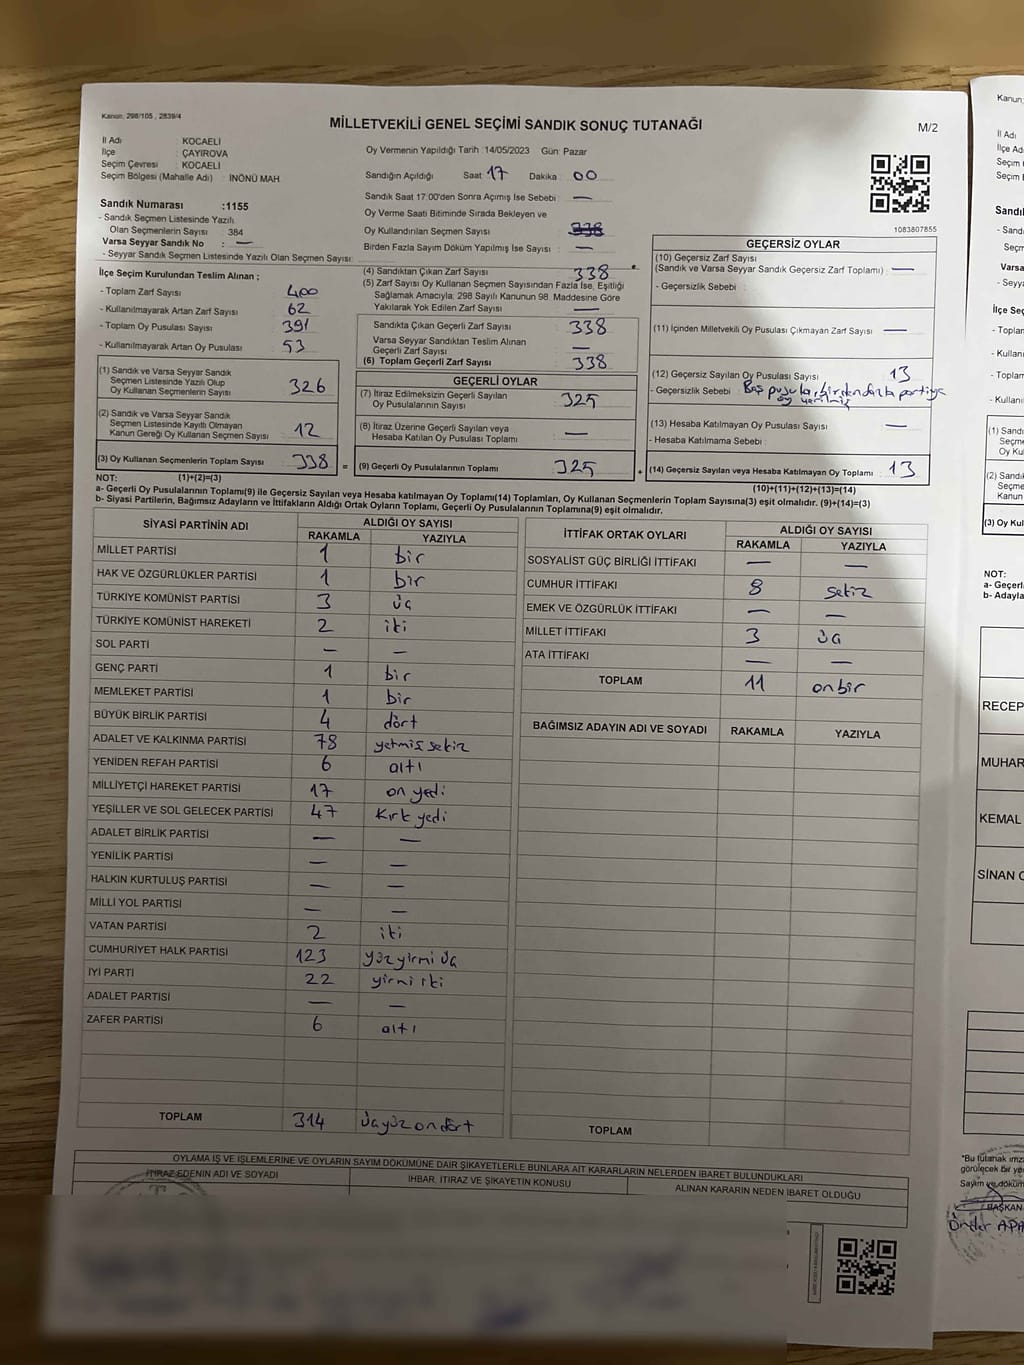 Kanun; 298/105 , 2839/4
MİLLETVEKİLİ GENEL SEÇİMİ SANDIK SONUÇ TUTANAĞI
M/2
İl Adı : KOCAELİ
İlçe : ÇAYIROVA
Seçim Çevresi : KOCAELİ
Seçim Bölgesi (Mahalle Adı) : İNÖNÜ MAH
Oy Vermenin Yapıldığı Tarih :14/05/2023 Gün: Pazar
Sandığın Açıldığı Saat 17 Dakika 00
Sandık Saat 17:00'den Sonra Açımış İse Sebebi —
Oy Verme Saati Bitiminde Sırada Bekleyen ve
Oy Kullandırılan Seçmen Sayısı 338
Birden Fazla Sayım Döküm Yapılmış İse Sayısı —
Sandık Numarası :1155
- Sandık Seçmen Listesinde Yazılı
Olan Seçmenlerin Sayısı 384
Varsa Seyyar Sandık No : —
- Seyyar Sandık Listesinde Yazılı Olan Seçmen Sayısı:
1083807855
İlçe Seçim Kurulundan Teslim Alınan ;
- Toplam Zarf Sayısı 400
- Kullanılmayarak Artan Zarf Sayısı 62
- Toplam Oy Pusulası Sayısı 391
- Kullanılmayarak Artan Oy Pusulası 53
(1) Sandık ve Varsa Seyyar Sandık
Seçmen Listesinde Yazılı Olup
Oy Kullanan Seçmenlerin Sayısı 326
(2) Sandık ve Varsa Seyyar Sandık
Seçmen Listesinde Kayıtlı Olmayan
Kanun Gereği Oy Kullanan Seçmen Sayısı 12
(3) Oy Kullanan Seçmenlerin Toplam Sayısı 338 =
(1)+(2)=(3)
(4) Sandıktan Çıkan Zarf Sayısı 338
(5) Zarf Sayısı Oy Kullanan Seçmen Sayısından Fazla İse, Eşitliği
Sağlamak Amacıyla, 298 Sayılı Kanunun 98. Maddesine Göre
Yakılarak Yok Edilen Zarf Sayısı —
Sandıkta Çıkan Geçerli Zarf Sayısı 338
Varsa Seyyar Sandıktan Teslim Alınan
Geçerli Zarf Sayısı —
(6) Toplam Geçerli Zarf Sayısı 338
GEÇERLİ OYLAR
(7) İtiraz Edilmeksizin Geçerli Sayılan
Oy Pusulalarının Sayısı 325
(8) İtiraz Üzerine Geçerli Sayılan veya
Hesaba Katılan Oy Pusulası Toplamı —
(9) Geçerli Oy Pusulalarının Toplamı 325 +
GEÇERSİZ OYLAR
(10) Geçersiz Zarf Sayısı
(Sandık ve Varsa Seyyar Sandık Geçersiz Zarf Toplamı) : —
- Geçersizlik Sebebi :
(11) İçinden Milletvekili Oy Pusulası Çıkmayan Zarf Sayısı —
(12) Geçersiz Sayılan Oy Pusulası Sayısı 13
- Geçersizlik Sebebi : Boş pusula, birden fazla partiye
oy verilmiş
(13) Hesaba Katılmayan Oy Pusulası Sayısı —
- Hesaba Katılmama Sebebi :
(14) Geçersiz Sayılan veya Hesaba Katılmayan Oy Toplamı 13
(10)+(11)+(12)+(13)=(14)
NOT:
a- Geçerli Oy Pusulalarının Toplamı(9) ile Geçersiz Sayılan veya Hesaba katılmayan Oy Toplamı(14) Toplamları, Oy Kullanan Seçmenlerin Toplam Sayısına(3) eşit olmalıdır. (9)+(14)=(3)
b- Siyasi Partilerin, Bağımsız Adayların ve İttifakların Aldığı Ortak Oyların Toplamı, Geçerli Oy Pusulalarının Toplamına(9) eşit olmalıdır.
SİYASİ PARTİNİN ADI ALDIĞI OY SAYISI
RAKAMLA YAZIYLA
MİLLET PARTİSİ 1 bir
HAK VE ÖZGÜRLÜKLER PARTİSİ 1 bir
TÜRKİYE KOMÜNİST PARTİSİ 3 üç
TÜRKİYE KOMÜNİST HAREKETİ 2 iki
SOL PARTİ — —
GENÇ PARTİ 1 bir
MEMLEKET PARTİSİ 1 bir
BÜYÜK BİRLİK PARTİSİ 4 dört
ADALET VE KALKINMA PARTİSİ 78 yetmiş sekiz
YENİDEN REFAH PARTİSİ 6 altı
MİLLİYETÇİ HAREKET PARTİSİ 17 on yedi
YEŞİLLER VE SOL GELECEK PARTİSİ 47 Kırk yedi
ADALET BİRLİK PARTİSİ — —
YENİLİK PARTİSİ — —
HALKIN KURTULUŞ PARTİSİ — —
MİLLİ YOL PARTİSİ — —
VATAN PARTİSİ 2 iki
CUMHURİYET HALK PARTİSİ 123 yüz yirmi üç
İYİ PARTİ 22 yirmi iki
ADALET PARTİSİ — —
ZAFER PARTİSİ 6 altı
TOPLAM 314 üçyüz on dört
İTTİFAK ORTAK OYLARI ALDIĞI OY SAYISI
RAKAMLA YAZIYLA
SOSYALİST GÜÇ BİRLİĞİ İTTİFAKI — —
CUMHUR İTTİFAKI 8 sekiz
EMEK VE ÖZGÜRLÜK İTTİFAKI — —
MİLLET İTTİFAKI 3 üç
ATA İTTİFAKI — —
TOPLAM 11 on bir
BAĞIMSIZ ADAYIN ADI VE SOYADI RAKAMLA YAZIYLA
TOPLAM
OYLAMA İŞ VE İŞLEMLERİNE VE OYLARIN SAYIM DÖKÜMÜNE DAİR ŞİKAYETLERLE BUNLARA AİT KARARLARIN NELERDEN İBARET BULUNDUKLARI
İTİRAZ EDENİN ADI VE SOYADI İHBAR, İTİRAZ VE ŞİKAYETİN KONUSU ALINAN KARARIN NEDEN İBARET OLDUĞU
Kanun;
İl Adı
İlçe Ad
Seçim
Seçim
Sandı
- Sand
Varsa
- Seyya
İlçe Seç
- Toplar
- Kullanı
- Toplam
- Kullanıl
(1) Sandı
Seçme
Oy Ku
(2) Sandı
Seçme
Kanun
(3) Oy Kul
NOT:
a- Geçerl
b- Adayla
RECEP
MUHAR
KEMAL
SİNAN O
"Bu tutanak imza
görülecek bir ye
Sayım ve döküm
BAŞKAN
Önder APA